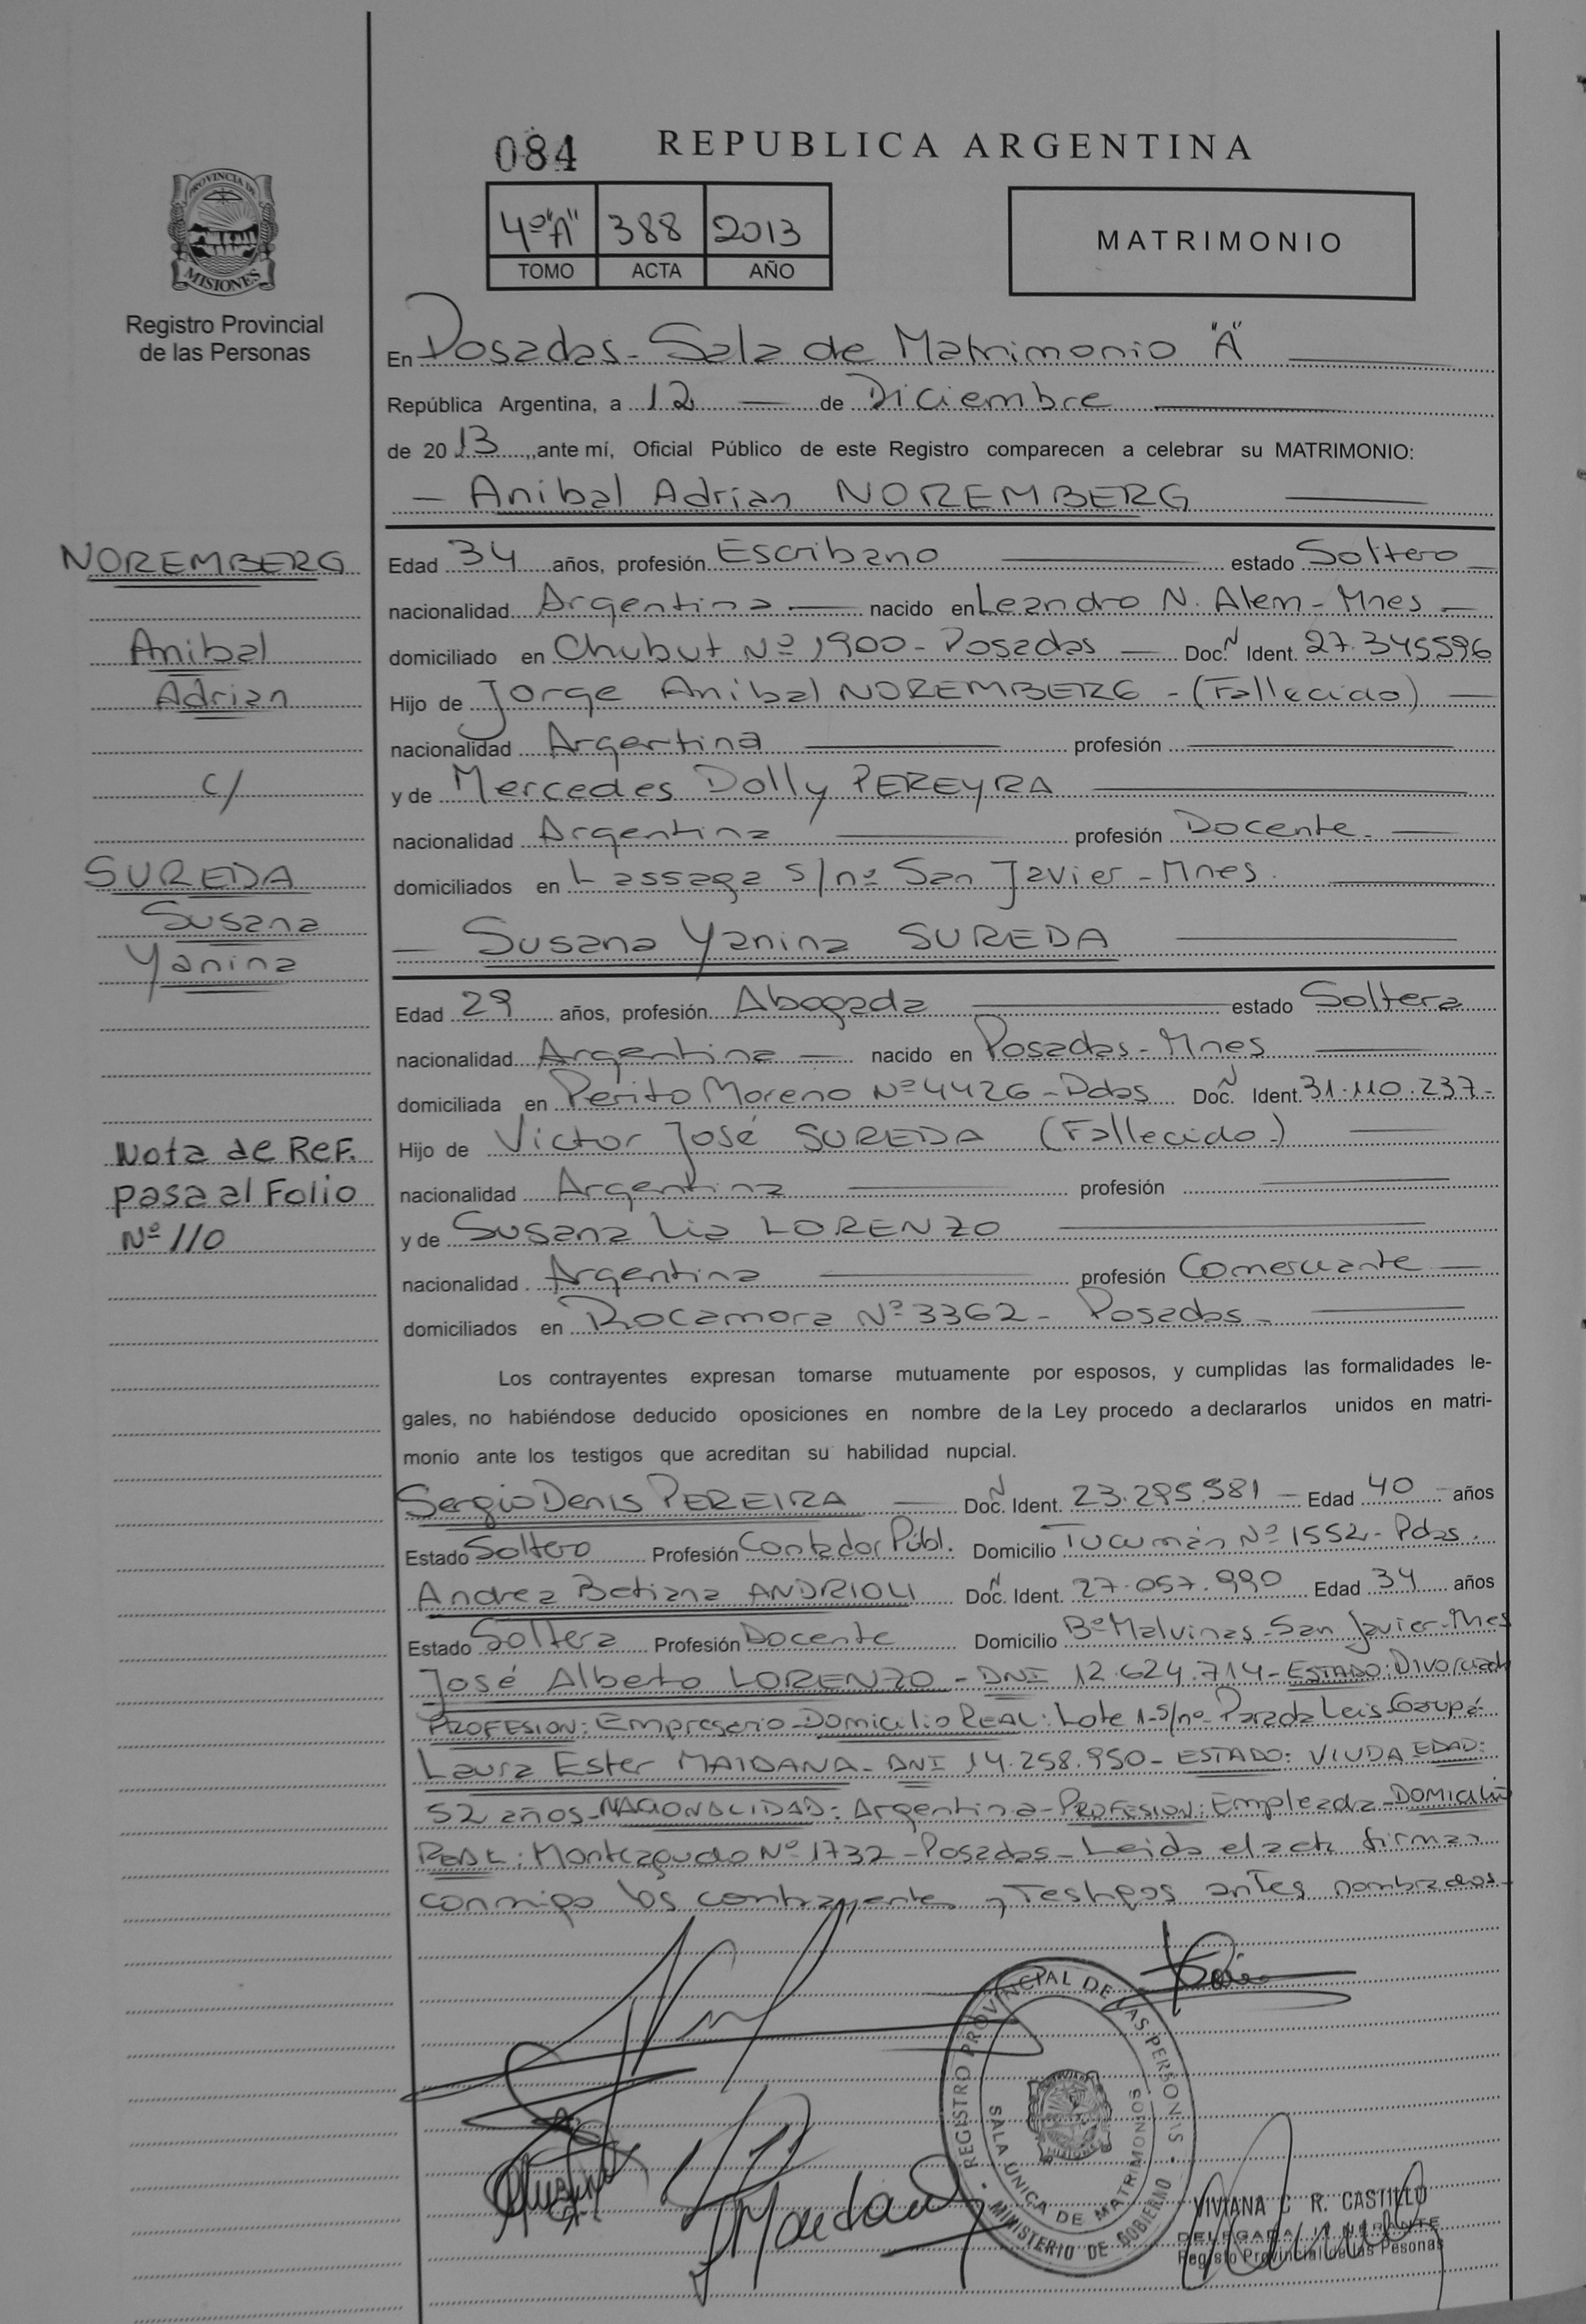 084 REPUBLICA ARGENTINA
PROVINCIA DE
MISIONES
Registro Provincial
de las Personas
4º"A" 388 2013
TOMO ACTA AÑO
MATRIMONIO
En Posadas - Sala de Matrimonio "A"
República Argentina, a 12 de Diciembre
de 2013, ante mí, Oficial Público de este Registro comparecen a celebrar su MATRIMONIO:
- Anibal Adrian NOREMBERG
NOREMBERG
Anibal
Adrian
c/
SUREDA
Susana
Yanina
Nota de Ref.
pasa al Folio
Nº 110
Edad 34 años, profesión Escribano estado Soltero
nacionalidad Argentina nacido en Leandro N. Alem - Mnes
domiciliado en Chubut Nº 1900 - Posadas Doc. N Ident. 27.345596
Hijo de Jorge Anibal NOREMBERG - (Fallecido)
nacionalidad Argentina profesión
y de Mercedes Dolly PEREYRA
nacionalidad Argentina profesión Docente.
domiciliados en Lassaga s/nº San Javier - Mnes.
- Susana Yanina SUREDA
Edad 29 años, profesión Abogada estado Soltera
nacionalidad Argentina nacido en Posadas - Mnes
domiciliada en Perito Moreno Nº 4426 - Pdas Doc. N Ident. 31.110.237-
Hijo de Victor José SUREDA (Fallecido)
nacionalidad Argentina profesión
y de Susana Lia LORENZO
nacionalidad Argentina profesión Comerciante
domiciliados en Rocamora Nº 3362 - Posadas
Los contrayentes expresan tomarse mutuamente por esposos, y cumplidas las formalidades le-
gales, no habiéndose deducido oposiciones en nombre de la Ley procedo a declararlos unidos en matri-
monio ante los testigos que acreditan su habilidad nupcial.
Sergio Denis PEREIRA Doc. N Ident. 23.295.581 - Edad 40 años
Estado Soltero Profesión Contador Públ. Domicilio Tucumán Nº 1552 - Pdas.
Andrea Betiana ANDRIOLI Doc. N Ident. 27.057.990 Edad 34 años
Estado Soltera Profesión Docente Domicilio Bº Malvinas - San Javier - Mnes
José Alberto LORENZO - DNI 12.624.714 - ESTADO: Divorciado
PROFESION: Empresario - Domicilio REAL: Lote 1 - s/nº - Parada Leis - Garupá
Laura Ester MAIDANA - DNI 14.258.950 - ESTADO: VIUDA EDAD:
52 años - NACIONALIDAD: Argentina - PROFESION: Empleada - DOMICILIO
REAL: Monteagudo Nº 1732 - Posadas - Leida el acta firman
conmigo los contrayentes y Testigos antes nombrados -
REGISTRO PROVINCIAL DE LAS PERSONAS
SALA UNICA DE MATRIMONIOS
MINISTERIO DE GOBIERNO
VIVIANA C R. CASTILLO
DELEGADA ITINERANTE
Registo Provincial de las Pesonas